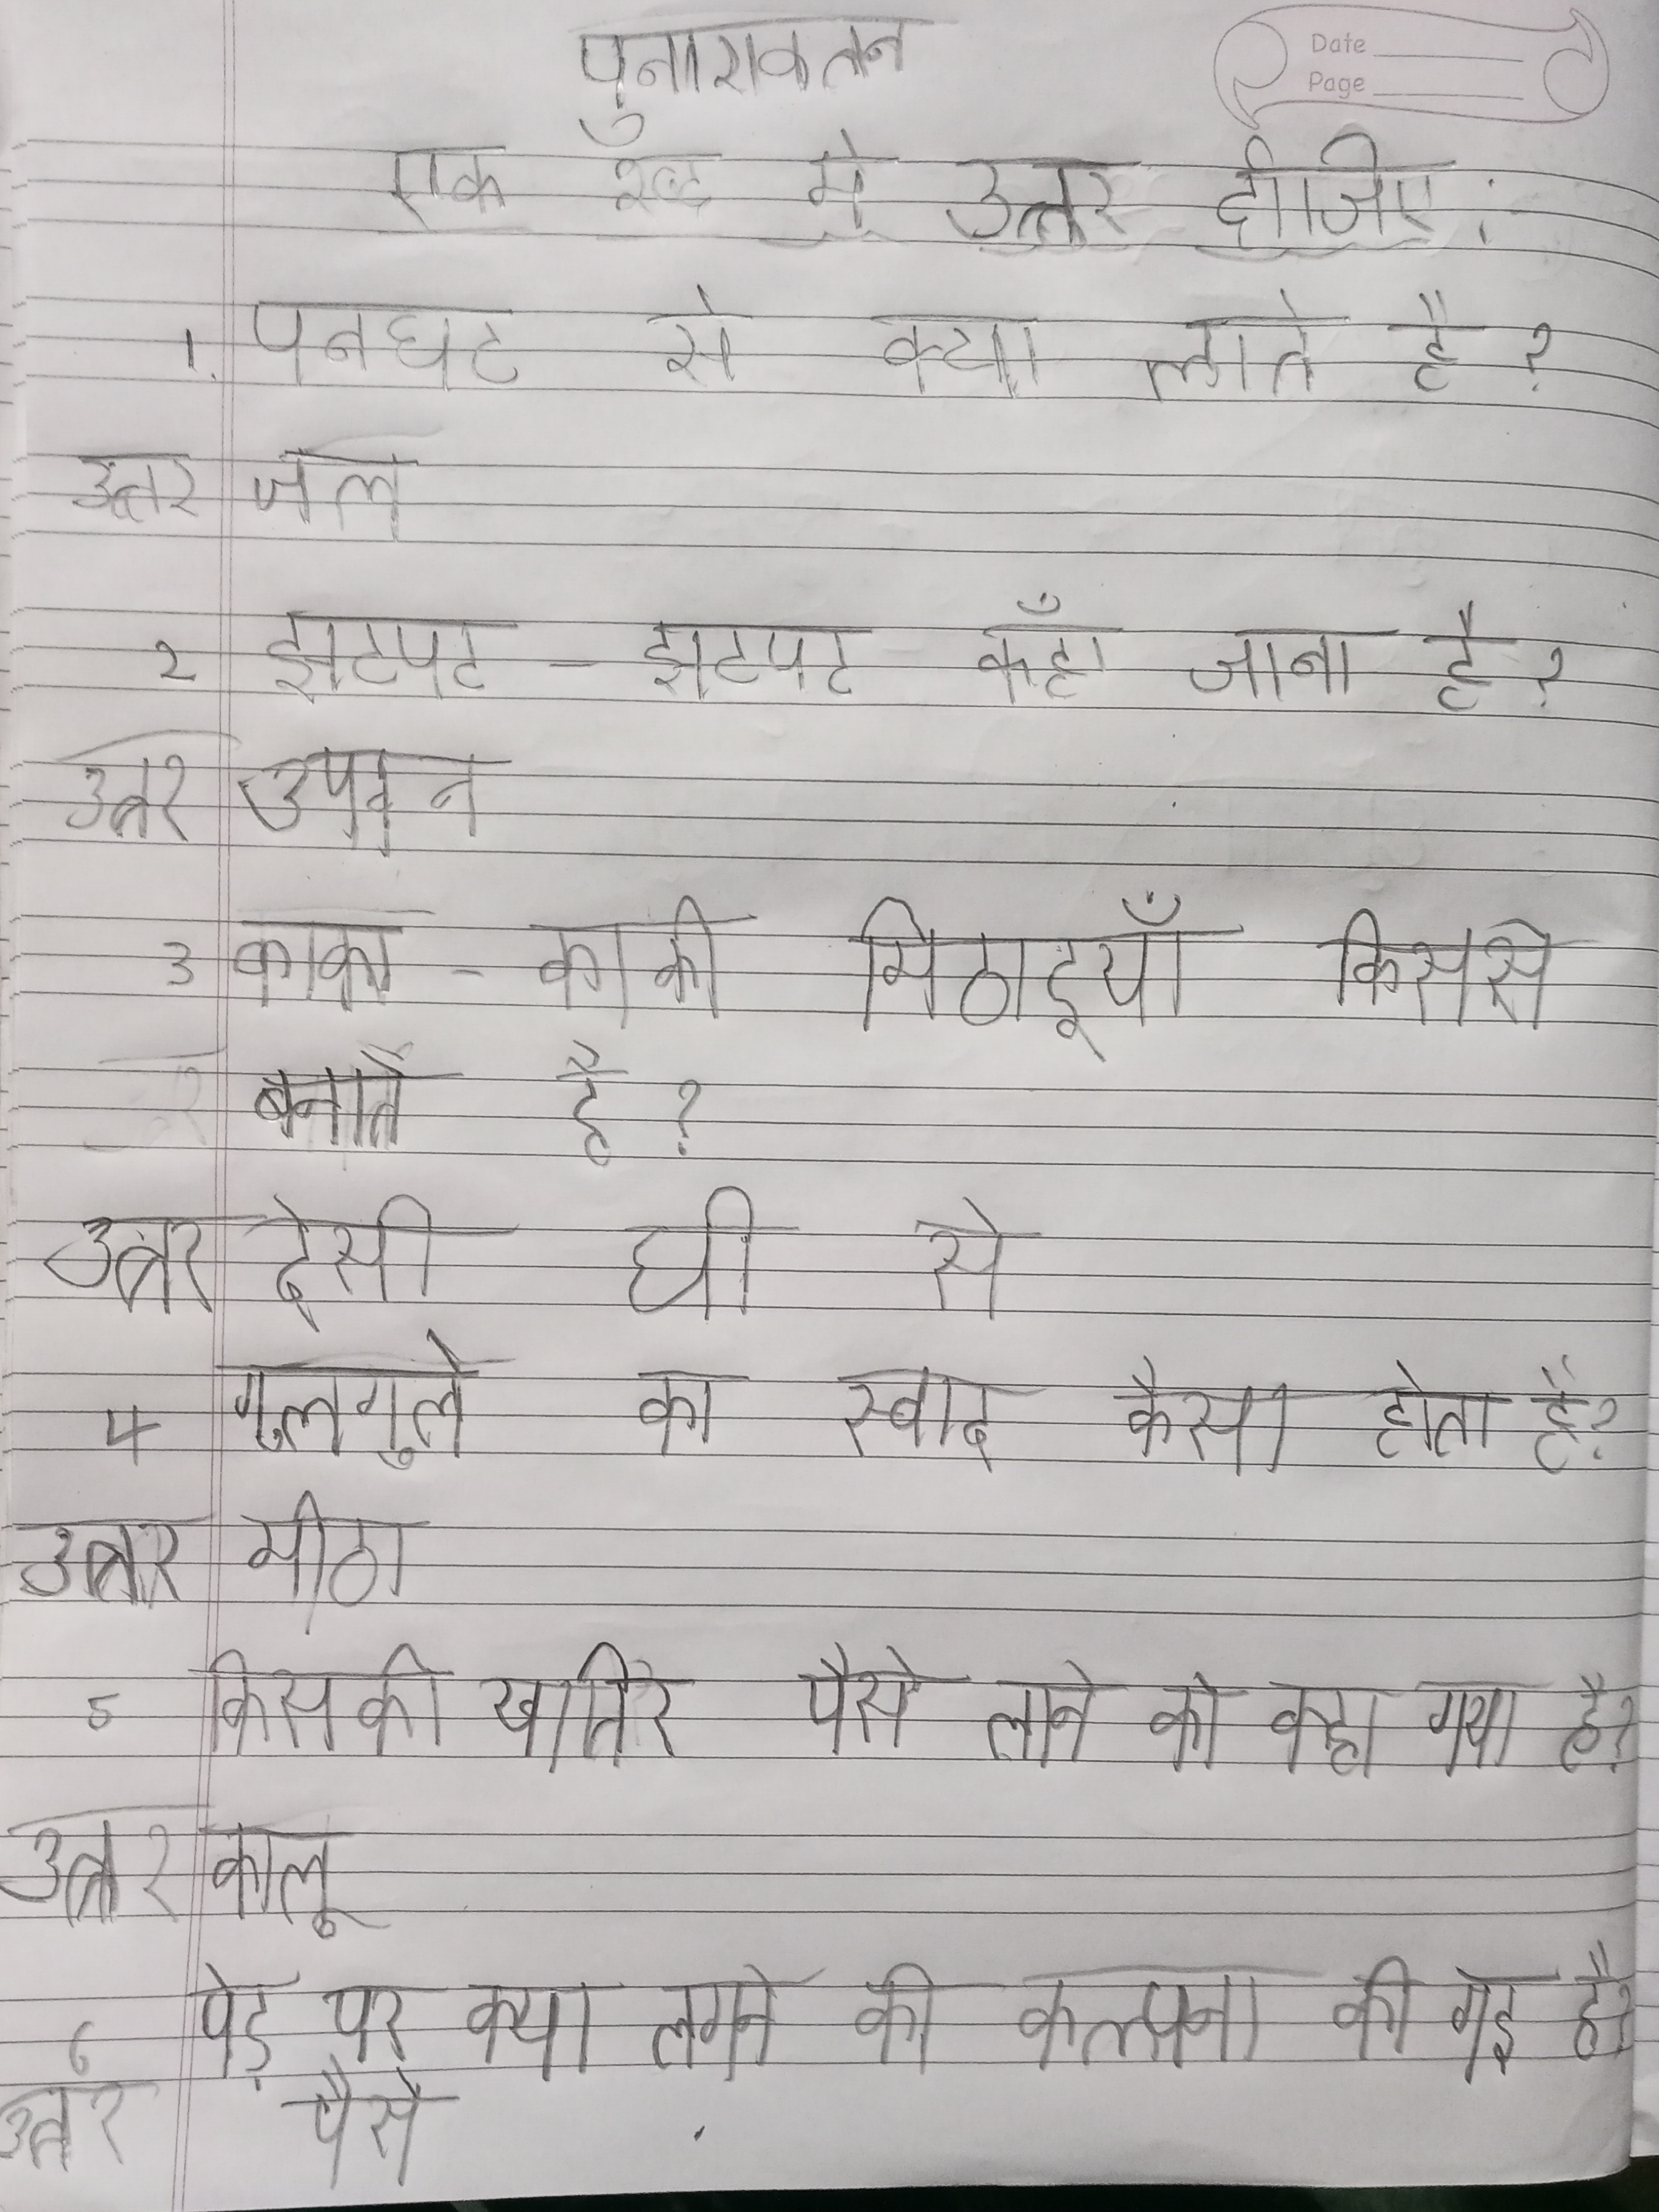 पुनाराकतान
Date
Page
एक शब्द मे उत्तर दीजिए :
1. पनघट से क्या लाते है ?
उत्तर जल
2 झटपट - झटपट कहाँ जाना है ?
उत्तर उपवन
3 काका - काकी मिठाइयाँ किससे
बनाते है ?
उत्तर देसी घी से
4 गुलगुले का स्वाद कैसा होता है ?
उत्तर मीठा
5 किसकी खातिर पैसे लाने को कहा गया है ?
उत्तर कालू
6 पेड़ पर क्या लगने की कल्पना की गइ है ?
उत्तर पैसे